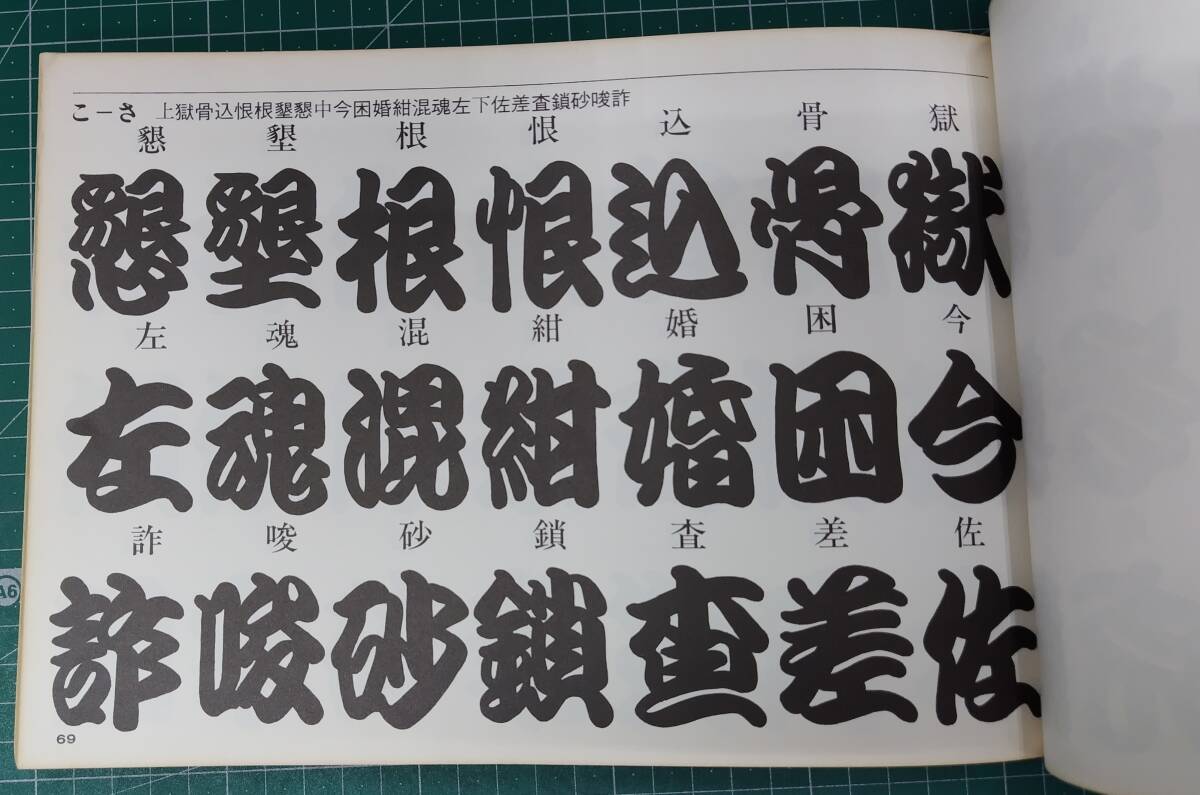 こ－さ 上獄骨込恨根墾懇中今困婚紺混魂左下佐差査鎖砂唆詐
獄 骨 込 恨 根 墾 懇
獄 骨 込 恨 根 墾 懇
今 困 婚 紺 混 魂 左
今 困 婚 紺 混 魂 左
佐 差 査 鎖 砂 唆 詐
佐 差 査 鎖 砂 唆 詐
69
A6